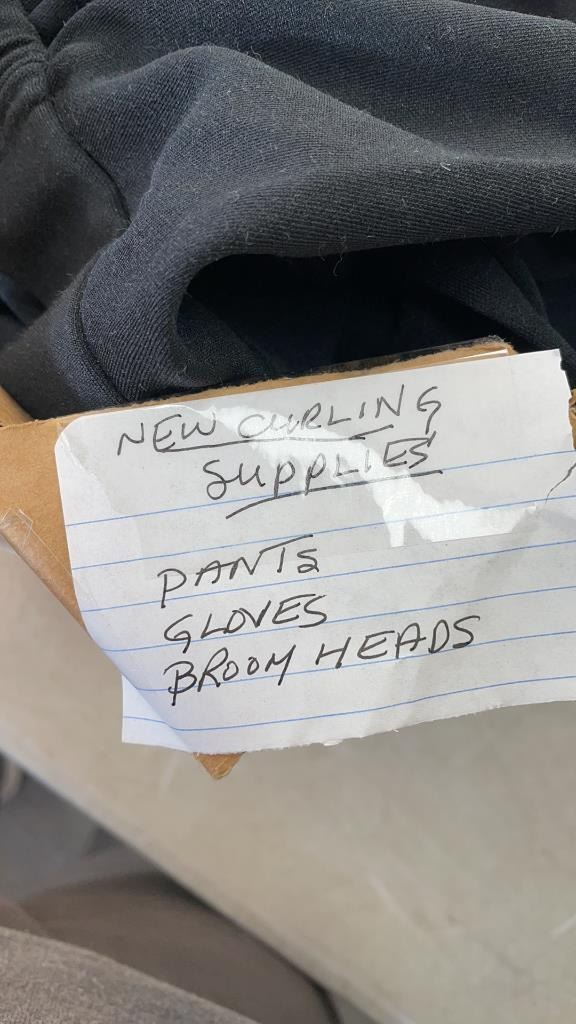 NEW CURLING
SUPPLIES
PANTS
GLOVES
BROOM HEADS